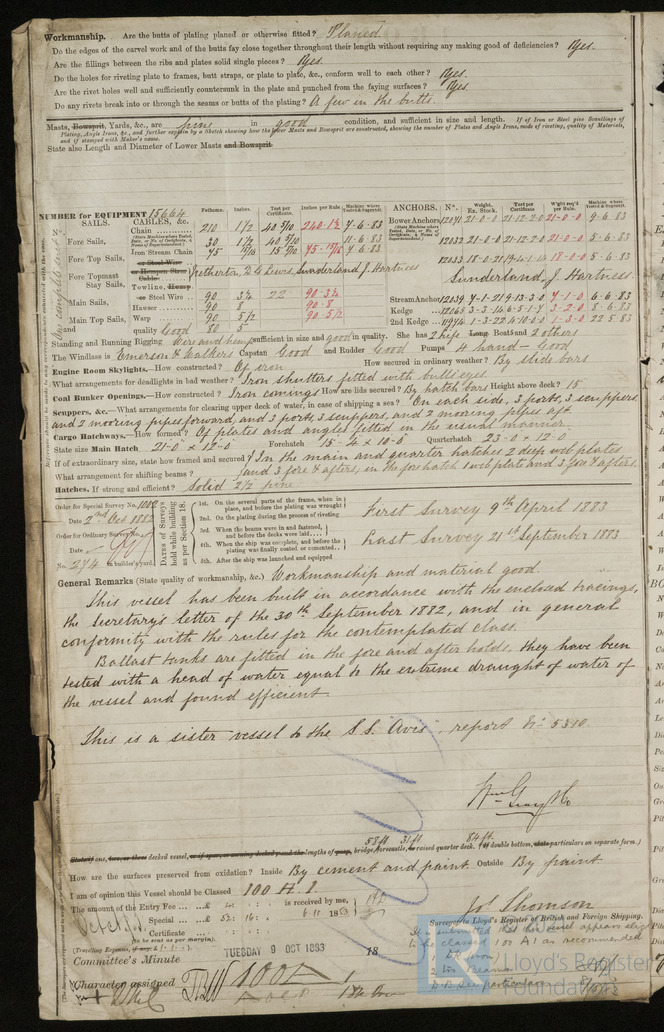 Workmanship. Are the butts of plating planed or otherwise fitted? Planed
Do the edges of the carvel work and of the butts fay close together throughout their length without requiring any making good of deficiencies? Yes.
Are the fillings between the ribs and plates solid single pieces? Yes.
Do the holes for riveting plate to frames, butt straps, or plate to plate, &c., conform well to each other? Yes.
Are the rivet holes well and sufficiently countersunk in the plate and punched from the faying surfaces? Yes.
Do any rivets break into or through the seams or butts of the plating? A few in the butts
Masts, Bowsprit, Yards, &c., are pine in good condition, and sufficient in size and length. If of Iron or Steel give Scantlings of
Plating, Angle Irons, &c., and further explain by a Sketch showing how the lower Masts and Bowsprit are constructed, showing the number of Plates and Angle Irons, mode of riveting, quality of Materials,
and if stamped with Maker's name.
State also Length and Diameter of Lower Masts and Bowsprit
NUMBER for EQUIPMENT 15664
SAILS. CABLES, &c. Fathoms. Inches. Test per Certificate. Inches per Rule. Machine where Tested & Superintd. ANCHORS. Nº. Weight. Ex. Stock. Test per Certificate. W'ght req'd per Rule. Machine where Tested & Superintd.
Chain 210 1½ 240-1½ 7-6-83 Bower Anchors 21-0-0 21-12-2-0 21-0-0 9-6-83
Fore Sails, 30 1½ 11-6-83 12032 21-0-0 21-12-2-0 21-0-0 5-6-83
Iron Stream Chain 75 15/16 75-15/16 7-6-83 12033 18-0-21 18-0-0 5-6-83
Fore Top Sails,
or Steel Wire
or Hempen Strm Cable Netherton, Sunderland, J. Hartness Sunderland, J. Hartness
Fore Topmast Stay Sails,
Towline, Hemp
or Steel Wire 90 3¼ 22 90-3¼ Stream Anchor 12039 7-1-21 9-13-3-0 7-1-0 6-6-83
Main Sails, Hawser 90 8 90-8 Kedge 3-2-0 8-6-83
Main Top Sails, Warp 90 5½ 90-5½ 2nd Kedge 1-3-22 4-10-0-0 1-3-0 22-5-83
and quality Good 80 5
Standing and Running Rigging Wire and hemp sufficient in size and good in quality. She has 2 life Long Boats and 2 others
The Windlass is Emerson & Walkers Capstan Good and Rudder Good Pumps 4 hand - Good
Engine Room Skylights.—How constructed? Of iron How secured in ordinary weather? By slide bars
What arrangements for deadlights in bad weather? Iron shutters fitted with bullseyes
Coal Bunker Openings.—How constructed? Iron comings How are lids secured? By hatch bars Height above deck? 15
Scuppers, &c.—What arrangements for clearing upper deck of water, in case of shipping a sea? On each side, 3 ports, 3 scuppers
and 2 mooring pipes forward, and 3 ports, 3 scuppers, and 2 mooring pipes aft
Cargo Hatchways.—How formed? Of plates and angles fitted in the usual manner.
State size Main Hatch 21-0 × 12-0 Forehatch 15-4 × 10-0 Quarterhatch 23-0 × 12-0
If of extraordinary size, state how framed and secured? In the main and quarter hatches 2 deep web plates
What arrangement for shifting beams? and 3 fore & afters, in the fore hatch 1 web plate and 3 fore & afters.
Hatches. If strong and efficient? Solid 2½ pine
Order for Special Survey No. 1002
Date 2nd Oct 1882
Order for Ordinary Survey No.
Date
No. 274 in builder's yard.
DATES of Surveys held while building as per Section 18.
1st. On the several parts of the frame, when in place, and before the plating was wrought
2nd. On the plating during the process of riveting
3rd. When the beams were in and fastened, and before the decks were laid
4th. When the ship was complete, and before the plating was finally coated or cemented
5th. After the ship was launched and equipped
First Survey 9th April 1883
Last Survey 21st September 1883
General Remarks (State quality of workmanship, &c.) Workmanship and material good.
This vessel has been built in accordance with the enclosed tracings,
the Secretary's letter of the 30th September 1882, and in general
conformity with the rules for the contemplated class.
Ballast tanks are fitted in the fore and after holds, they have been
tested with a head of water equal to the extreme draught of water of
the vessel and found efficient
This is a sister vessel to the S.S. "Avis", report No 5310
Wm Gray & Co
53 ft 31 ft 84 ft.
State if one, two, or three decked vessel, or if spar, or awning decked and the lengths of poop, bridge, forecastle, or raised quarter deck. (If double bottom, state particulars on separate form.)
How are the surfaces preserved from oxidation? Inside By cement and paint Outside By paint
I am of opinion this Vessel should be Classed 100 A. 1.
The amount of the Entry Fee £ 4 : : is received by me,
Special £ 52 : 16 : 6-10 1883
Certificate
(to be sent as per margin).
(Travelling Expenses, if any, £ ).
Jos. Thomson
Surveyor to Lloyd's Register of British and Foreign Shipping.
It is submitted that this vessel appears elig
to be classed 100 A1 as recommended
Committee's Minute TUESDAY 9 OCT 1883 18
Character assigned 100A1
Lloyd's Register
Foundation